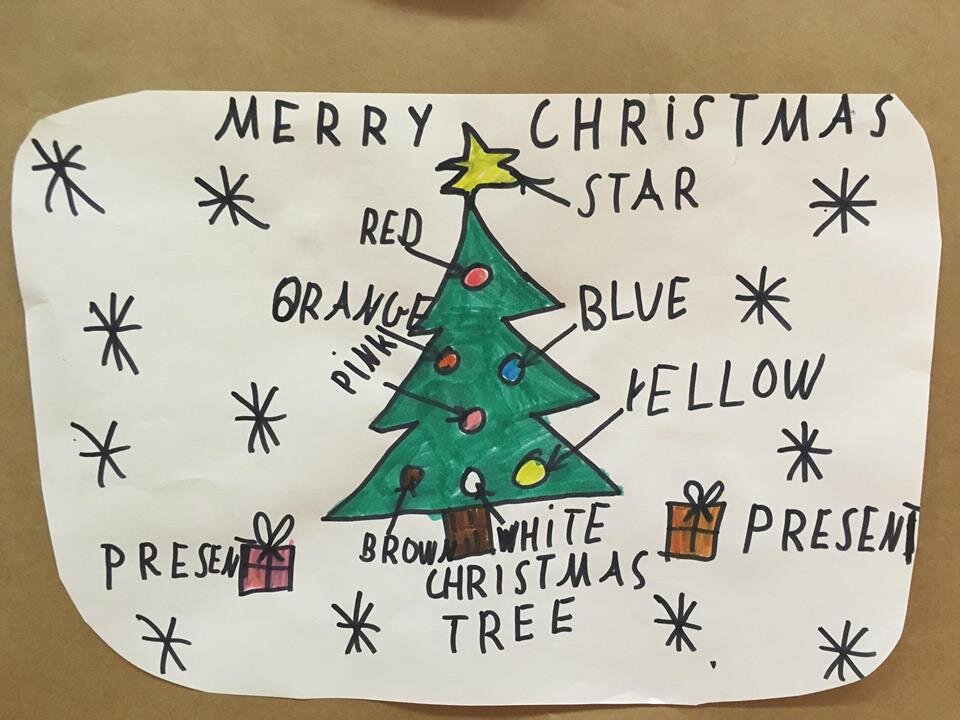 MERRY CHRiSTMAS
STAR
RED
ORANGE
BLUE
PiNK
YELLOW
BROWN
WHiTE
PRESENT
PRESENT
CHRISTMAS
TREE